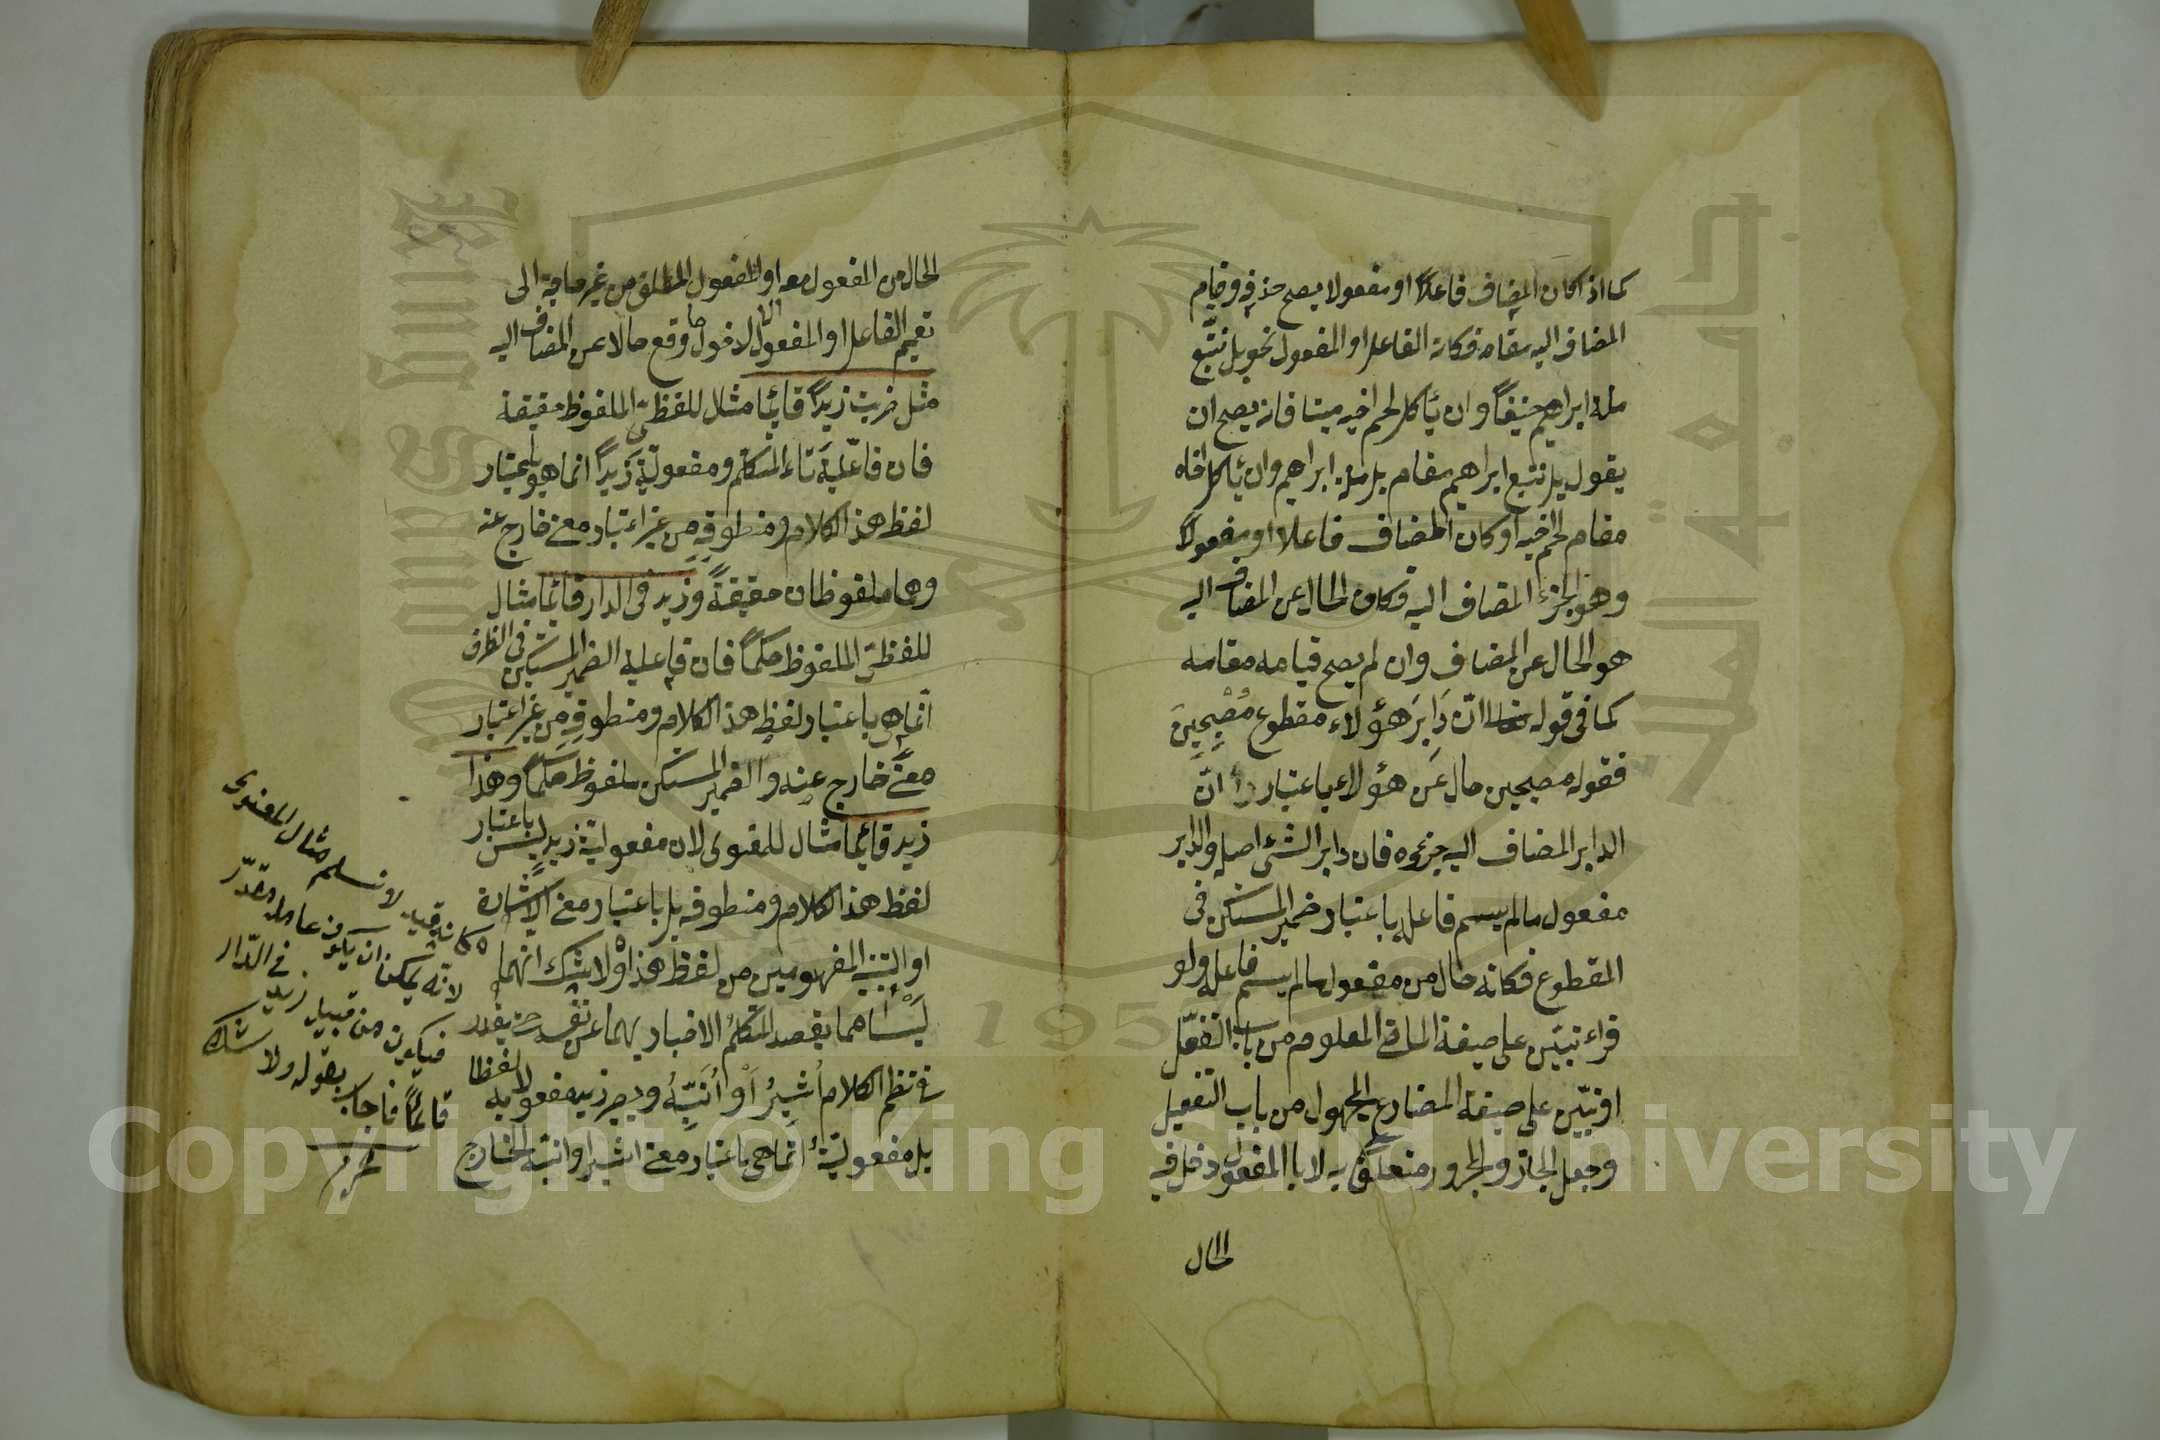 كما اذا كان المضاف فاعلاً او مفعولا يصح حذفه وقيام
المضاف اليه مقامه فكانه الفاعل او المفعول نحو بل نتّبع
ملة ابراهيم حنيفاً وان يأكل لحم اخيه ميتا فانه يصح ان
يقول بل نتبع ابراهيم مقام بل ملة ابراهيم وان يأكل اخاه
مقام لحم اخيه او كان المضاف فاعلا او مفعولاً
وهو جزء المضاف اليه فكان الحال عن المضاف اليه
هو الحال عن المضاف وان لم يصح قيامه مقامه
كما في قوله تعالى انّ دَابِرَ هؤلاء مقطوع مُصْبِحِينَ
فقوله مصبحين حال عَن هؤلاء باعتبار انّ
الدابر المضاف اليه جزؤه فان دابر الشئ اصله والدابر
مفعول ما لم يسم فاعله باعتبار ضمير المستكن في
المقطوع فكانه حال من مفعول ما لم يسم فاعله ولو
قراء تبيّن على صيغة الماضي المعلوم من باب التفعّل
او نبيّن على صيغة المضارع المجهول من باب التفعيل
وجعل الجار والمجرور متعلّقا به لا بالمفعول دخل فيه
الحال
الحال من المفعول معه او المفعول المطلق من غير حاجة الى
تعميم الفاعل او المفعول الا لدخول ما وقع حالا عن المضاف اليه
مثل ضربت زيداً قائماً مثال للفظيّ الملفوظ حقيقة
فان فاعليّة تاء المتكلم ومفعوليّة زيداً انما هو باعتبار
لفظ هذا الكلام ومنطوقه من غير اعتبار معنى خارج عنه
وهما ملفوظان حقيقةً وزيد في الدار قائما مثال
للفظيّ الملفوظ حكماً فان فاعلية الضمير المستكن في الظرف
انّما هي باعتبار لفظ هذا الكلام ومنطوقه من غير اعتبار
معنىً خارج عنه والضمير المستكن ملفوظ حكماً وهذا
زيد قائماً مثال للمعنوى لان مفعولية زيد ليس باعتبار
لفظ هذا الكلام ومنطوقه بل باعتبار معنى الاشارة
او التنبيه المفهومين من لفظ هذا ولا شك انهما
ليسا مما يقصد المتكلم الاخبار بهما عن نفسه حتى يقدر
في نظم الكلام أُشيرُ أَوْ أُنَبِّهُ ويصير زيد مفعولا به لفظا
بل مفعوليّتهُ انّما هي باعتبار معنى اشير او انبّه الخارج
لا نسلم مثال المعنوى
لانّه يمكن ان يكون عامله مقدّر
فيكون من قبيل زيد في الدّار
قائماً فاجاب بقوله ولا شك
Copyright © King Saud University
King Saud University
جامعة الملك سعود
195